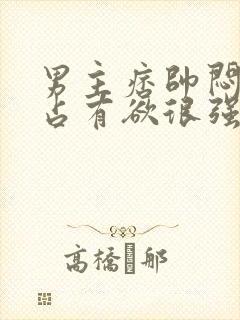 男主痞帅闷
占有欲很强
高橋那